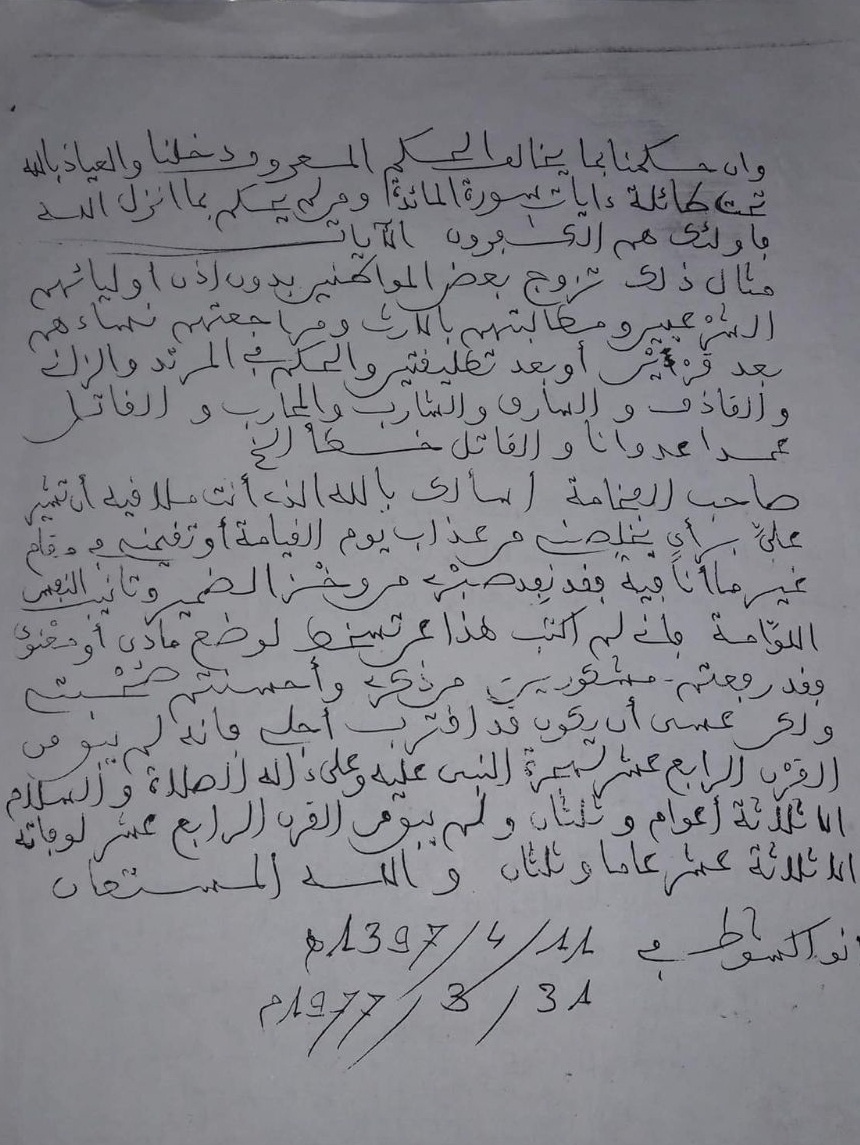 وان حكمنا بما يخالف الحكم المعروف دخلنا والعياذ بالله
تحت طائلة ءايات سورة المائدة ومن لم يحكم بما انزل الله
فاولئك هم الكافرون الآيات
مثال ذلك تزوج بعض المواطنين بدون إذن أوليائهم
الشرعيين ومطالبتهم بالارث ومراجعتهم نساءهم
بعد قرءين أو بعد تطليقتين والحكم في المرتد والزاني
والقاذف والسارق والشارب والمحارب والقاتل
عمدا عدوانا والقاتل خطأ الخ
صاحب الفخامة أسألك بالله الذي أنت ملاقيه أن تشير
علي برأي يخلصني من عذاب يوم القيامة أو تقيمني في مقام
غير ما أنا فيه فقد نفد صبري من وخز الضمير وتأنيب النفس
اللوامة فاني لم اكتب هذا عن تسخط لوضع مادي أو معنوي
فقد رفعتم مشكورين من ذكري وأحسنتم صحبتي
ولكن عسى أن يكون قد اقترب أجلي فانه لم يبق من
القرن الرابع عشر لهجرة النبي عليه وعلى ءاله الصلاة والسلام
الا ثلاثة أعوام وثلثان ولم يبق من القرن الرابع عشر لوفاته
الا ثلاثة عشر عاما وثلثان والله المستعان
نواكشوط في 11/4/1397ه
31/3/1977م